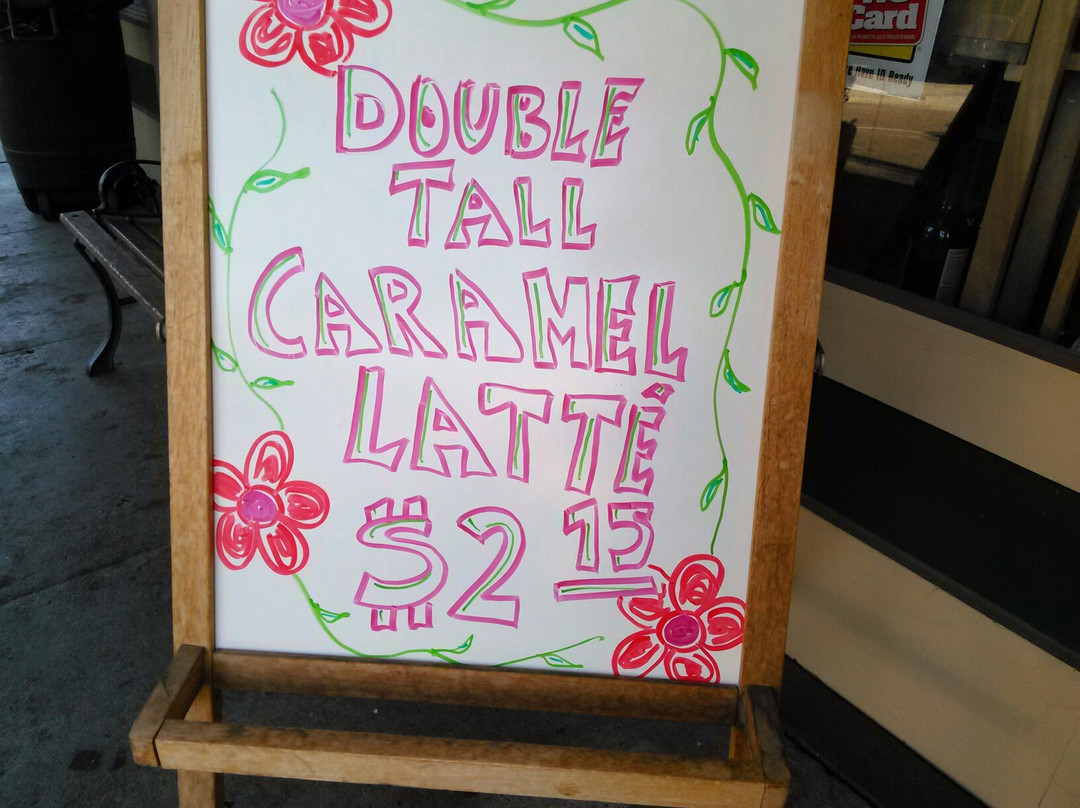 Card
Have ID Ready
DOUBLE
TALL
CARAMEL
LATTÉ
$2 15